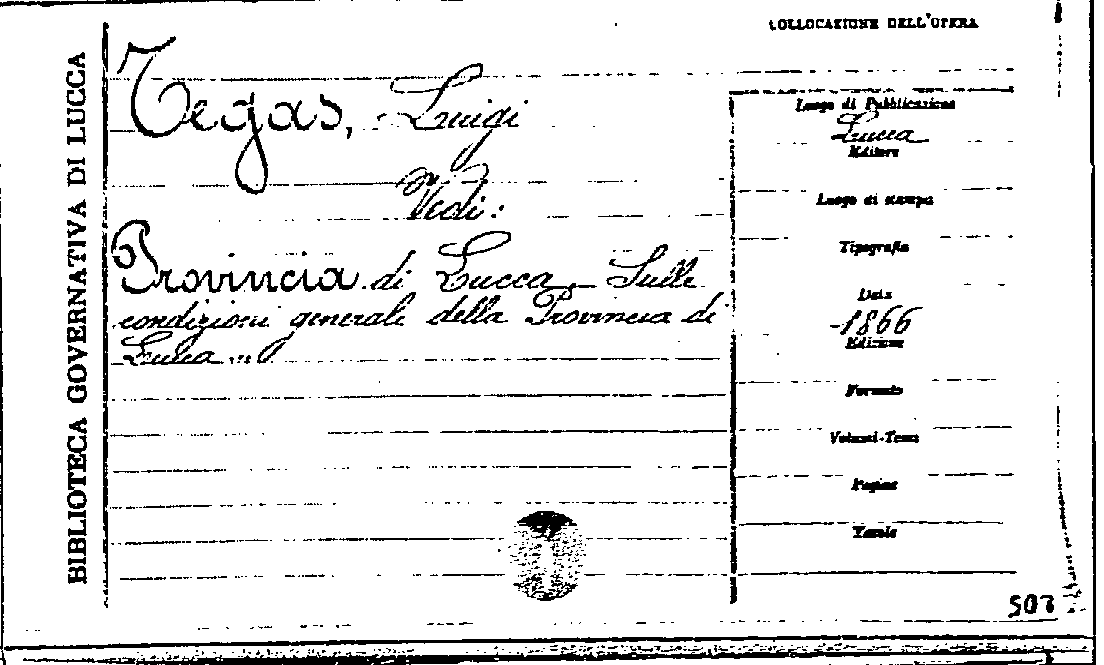 COLLOCAZIONE DELL'OPERA
BIBLIOTECA GOVERNATIVA DI LUCCA
Tegas, Luigi
Vedi:
Provincia di Lucca - Sulle
condizioni generali della Provincia di
Lucca ...
Luogo di Pubblicazione
Lucca
Editore
Luogo di stampa
Tipografia
Data
-1866
Edizione
Formato
Volumi-Tomi
Pagine
Tavole
507